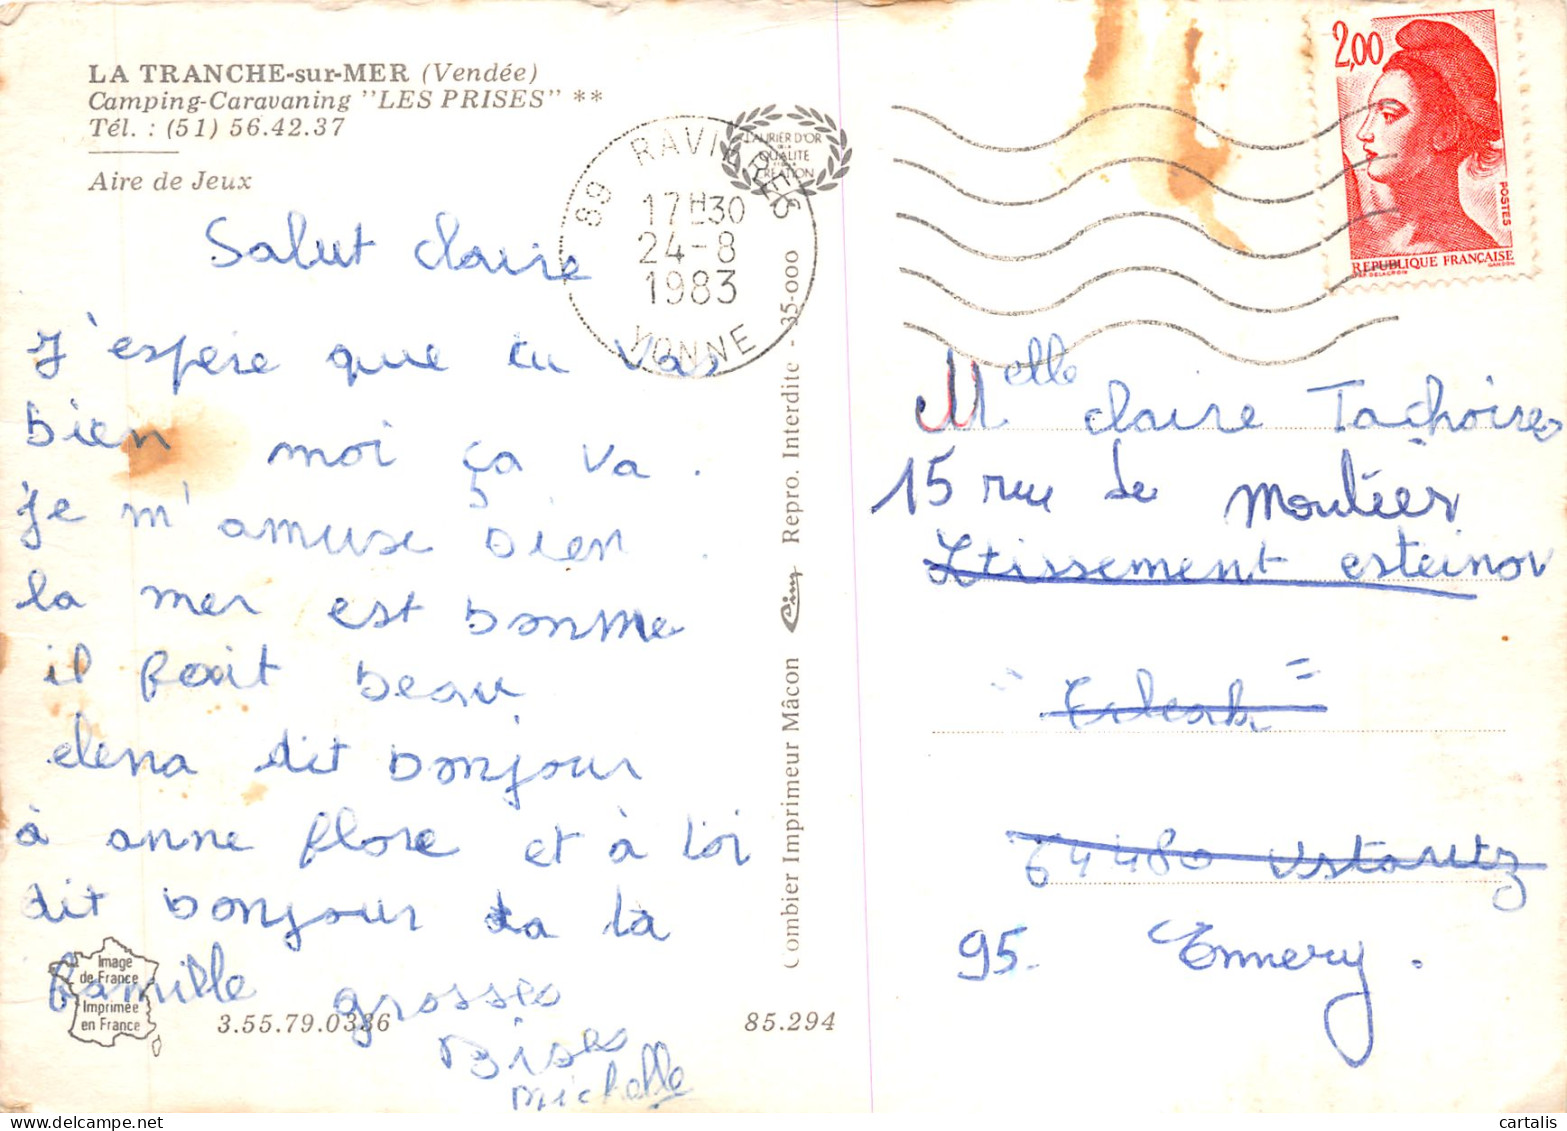 LA TRANCHE-sur-MER (Vendée)
Camping-Caravaning "LES PRISES" **
Tél. : (51) 56.42.37
Aire de Jeux
Salut Claire
J'espère que tu vas
bien moi ça va .
je m'amuse bien .
la mer est bonne
il fait beau
elena dit bonjour
à anne flore et à toi
dit bonjour à la
famille grosses
Bises
Michelle
Image
de France
Imprimée
en France
3.55.79.0336
85.294
LAURIER D'OR
DE LA
QUALITE
CREATION
89 RAVIERES
17H30
24-8
1983
YONNE
Combier Imprimeur Mâcon Cim Repro. Interdite - 35-000
2,00
POSTES
REPUBLIQUE FRANÇAISE
D'AP. DELACROIX GANDON
Melle Claire Tachoires
15 rue de Moutier
Ltissement esteinou
64480 Ustaritz
95. Ennery .
cartalis